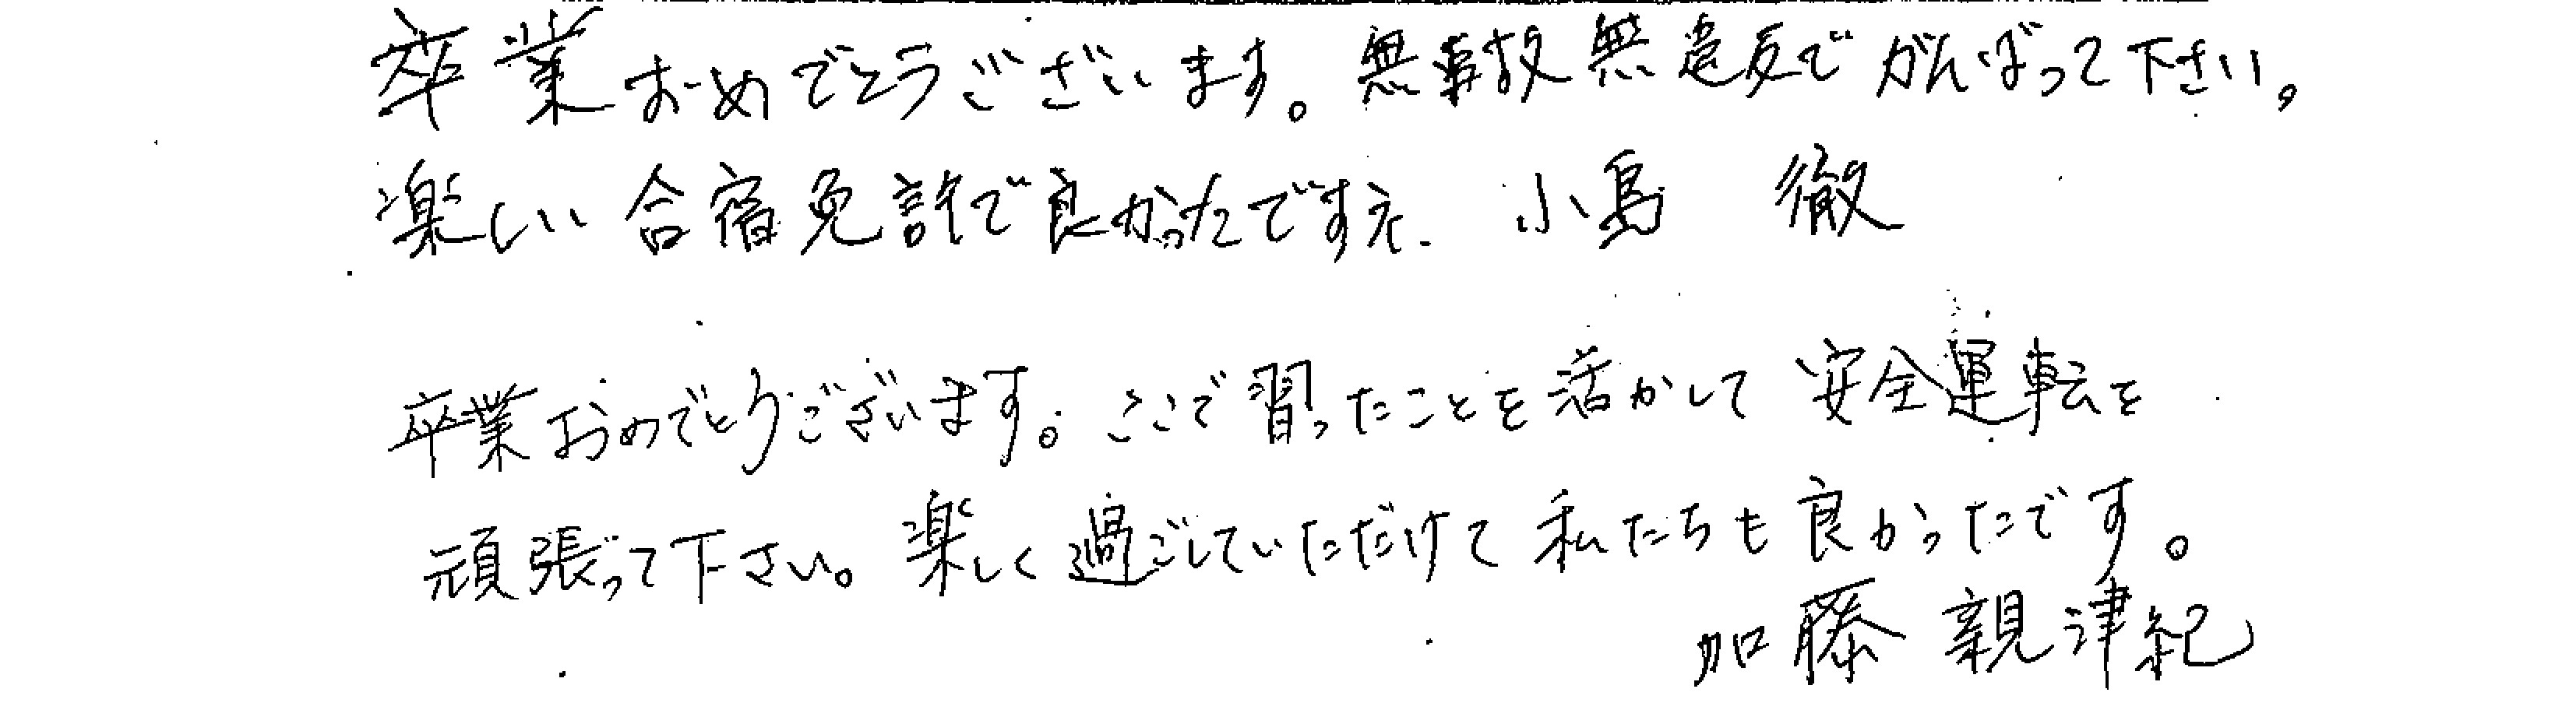 卒業おめでとうございます。無事故無違反でがんばって下さい。
楽しい合宿免許で良かったですネ. 小島 徹
卒業おめでとうございます。ここで習ったことを活かして安全運転を
頑張って下さい。楽しく過ごしていただけて私たちも良かったです。
加藤 親津紀